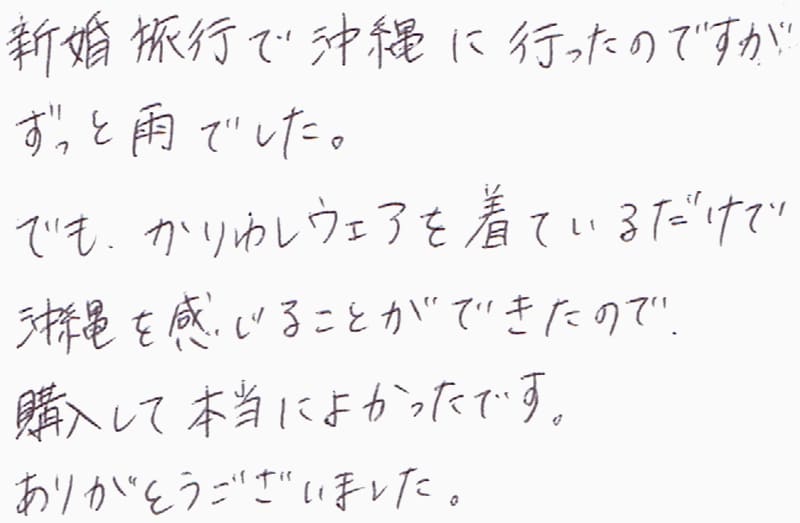 新婚旅行で沖縄に行ったのですが
ずっと雨でした。
でも、かりゆしウェアを着ているだけで
沖縄を感じることができたので、
購入して本当によかったです。
ありがとうございました。